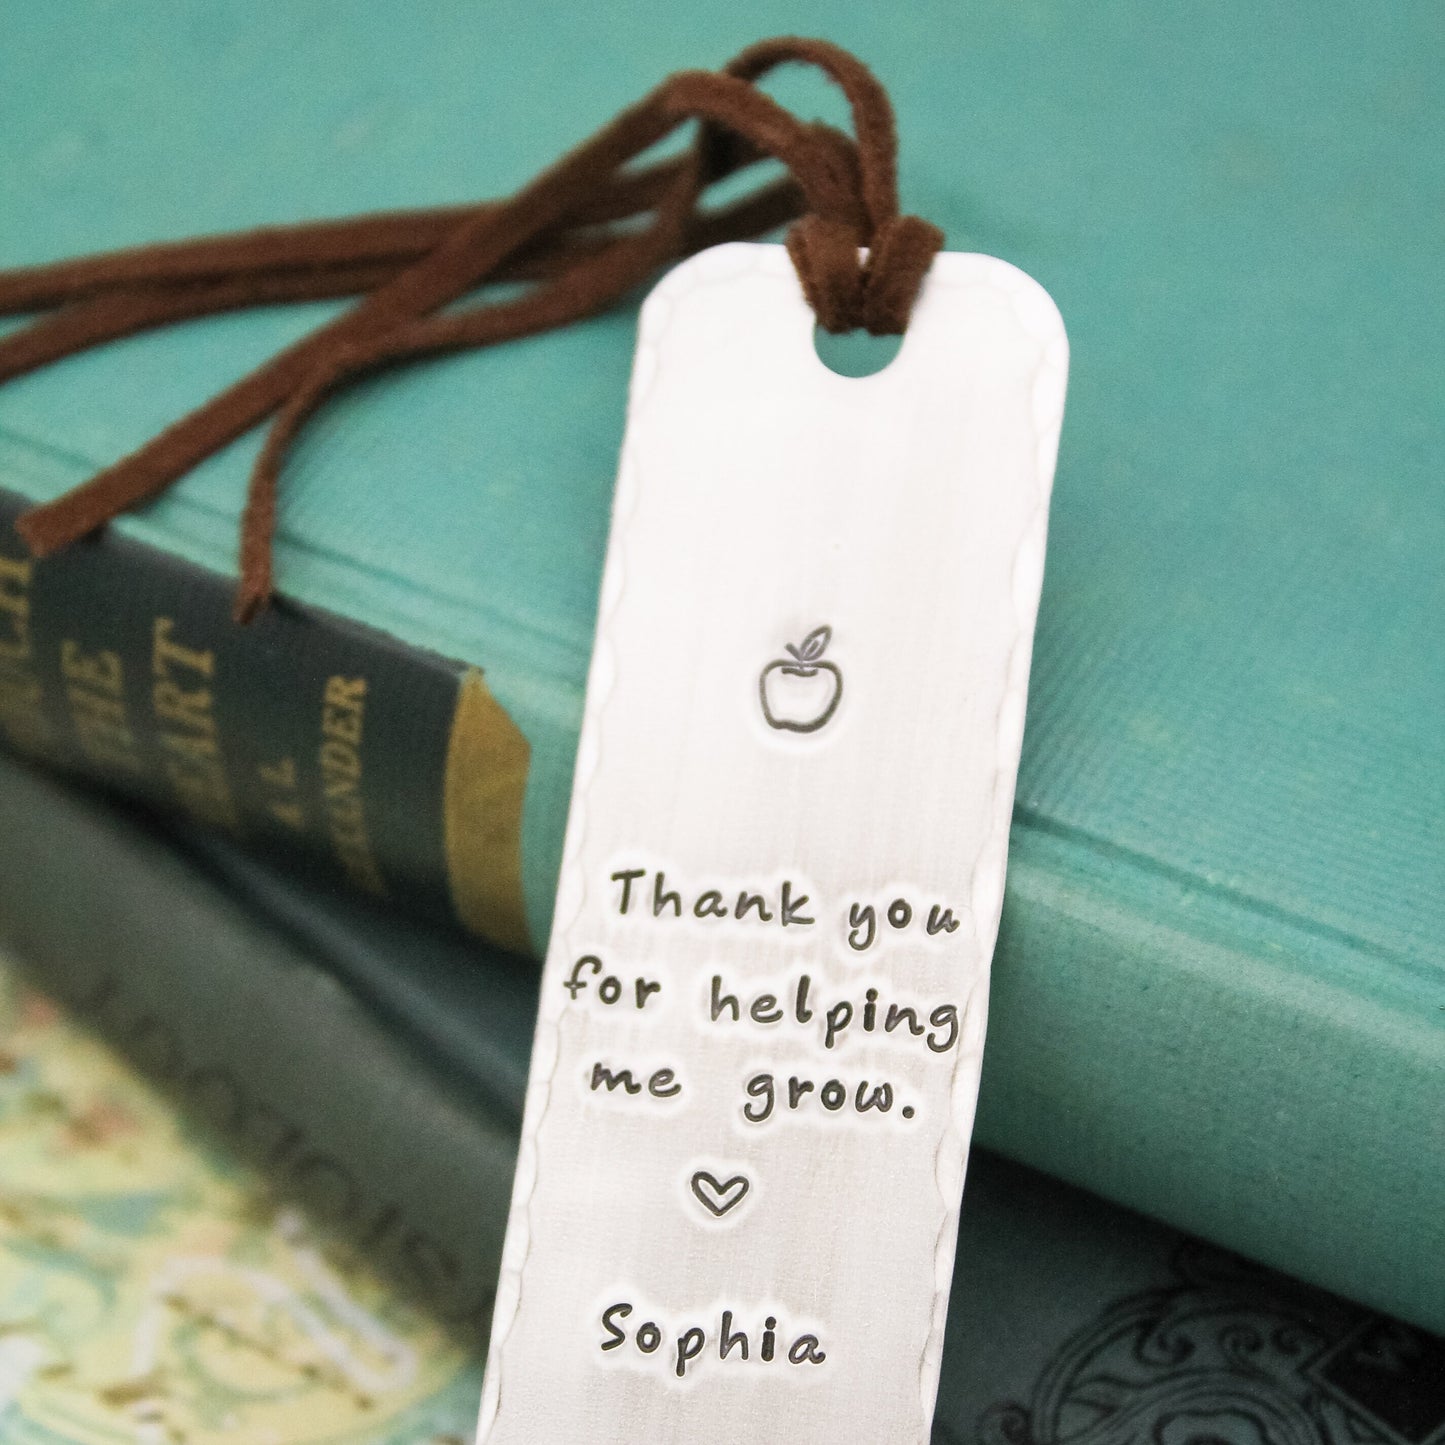 Thank you
for helping
me grow.
Sophia
THE
HEART
A. L.